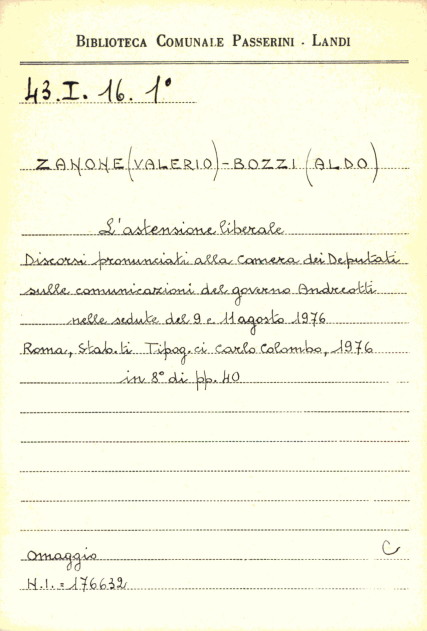 BIBLIOTECA COMUNALE PASSERINI - LANDI
43.I.16.1°
ZANONE (VALERIO) - BOZZI (ALDO)
L'astensione liberale
Discorsi pronunciati alla Camera dei Deputati
sulle comunicazioni del governo Andreotti
nelle sedute del 9 e 11 agosto 1976
Roma, Stab.ti Tipog.ci Carlo Colombo, 1976
in 8° di pp. 40
omaggio
C
N.I. = 176632